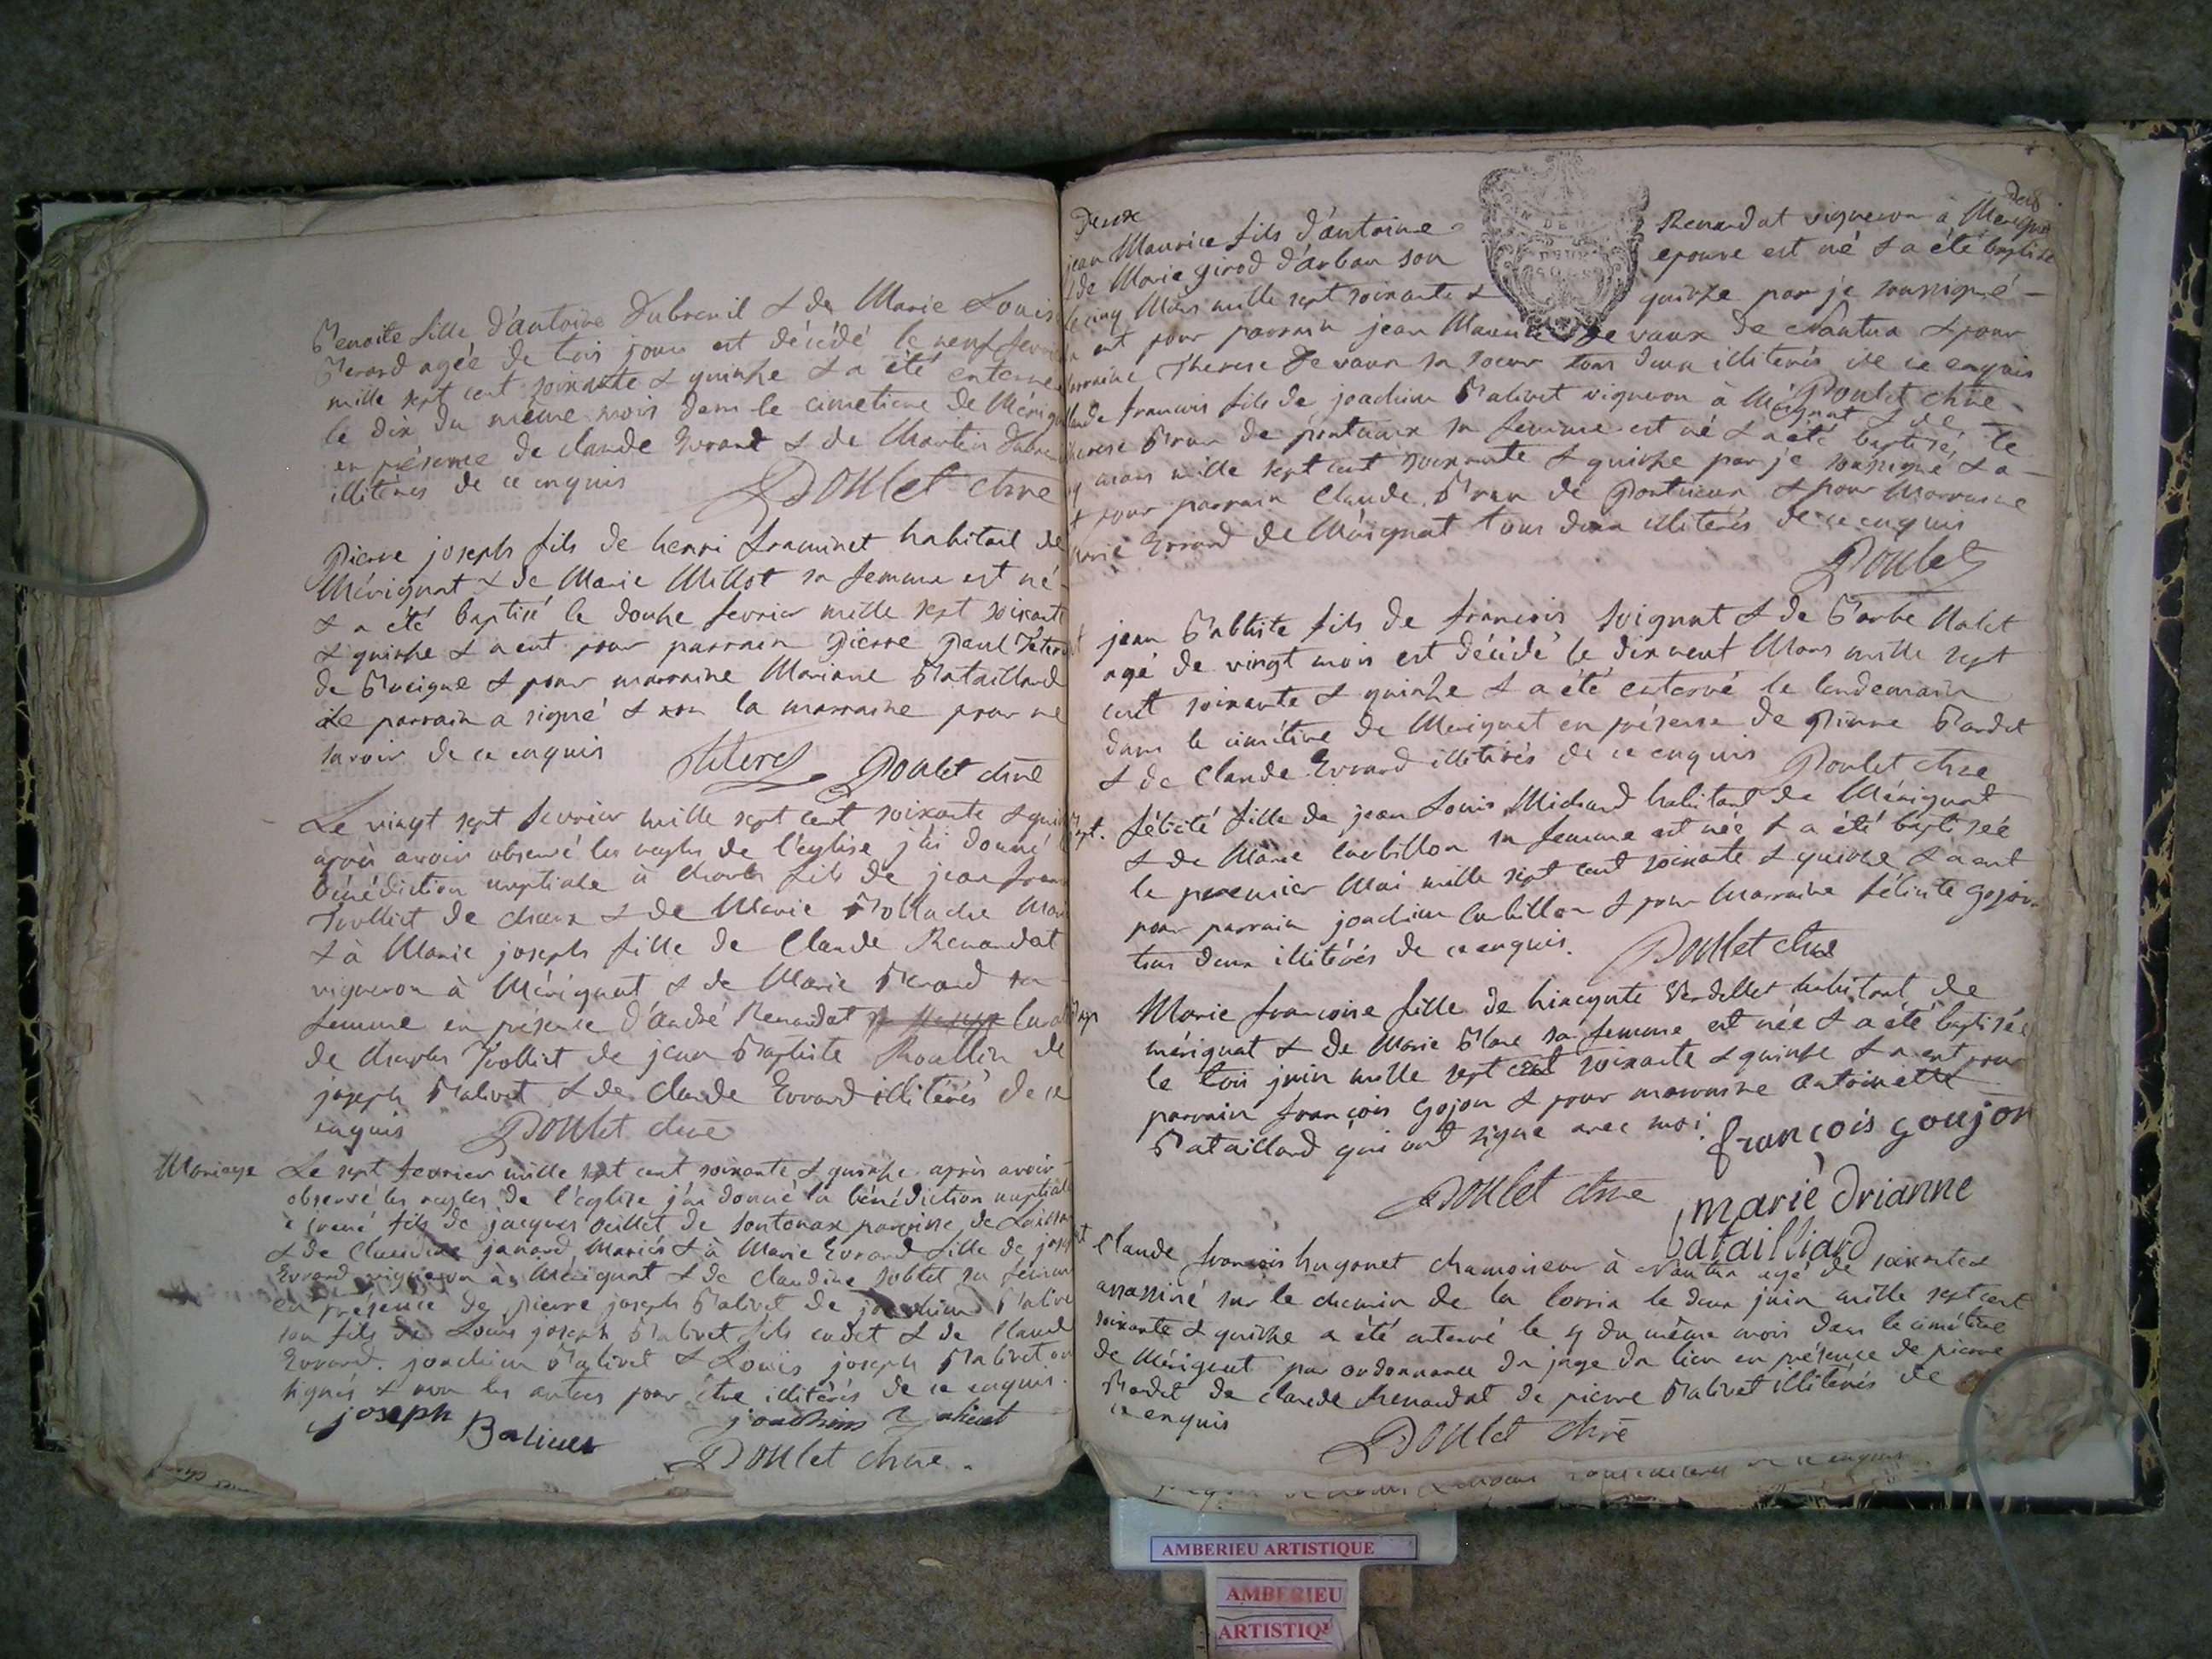 Benoite fille d'antoine Dubreuil & de Marie Louise
Berard agée de trois jours est décédé le neuf fevrier
mille sept cent soixante & quinze & a été enterrée
le dix du même mois dans le cimetiere de Mérignat
en présence de claude Evrard & de Martin Dubreuil
illitérés de ce enquis
Poulet chre
Pierre joseph fils de henri framinet habitant de
Mérignat & de Marie Millot sa femme est né
& a été baptisé le douze fevrier mille sept soixante
& quinze & a eut pour parrain Pierre Paul
de & pour marraine Mariane Bataillard
Le parrain a signé & non la marraine pour ne
savoir de ce enquis
Poulet chre
Le vingt sept fevrier mille sept cent soixante & quinze
après avoir observé les regles de l'église j'ai donné la
bénédiction nuptiale à charles fils de jean
de & de Marie
& à Marie joseph fille de Claude Renandat
vigneron à Mérignat & de Marie Berard sa
femme en présence d'André Renandat
de charles de jean Baptiste Roullin de
joseph Balivet & de Claude Evrard illitérés de ce
enquis Poulet chre
Mariage
Le sept fevrier mille sept cent soixante & quinze après avoir
observé les regles de l'eglise j'ai donné la bénédiction nuptiale
à irené fils de jacques de paroisse de
& de Claudine janard Mariés & à Marie Evrard fille de joseph
Evrard vigneron à Mérignat & de Claudine sa femme
en présence de Pierre joseph Balivet de joachim Balivet
son fils de Louis joseph Balivet fils cadet & de Claude
Evrard. joachim Balivet & Louis joseph Balivet on
signés & non les autres pour être illitérés de ce enquis.
joseph Balivet
joachim Balivet
Poulet chre.
Deux
jean Maurice fils d'antoine Renandat vigneron à Merignat
& de Marie girod d'arban son epouse est né & a été baptisé
le cinq Mars mille sept soixante & quinze par je soussigné
a eut pour parrain jean Maurice De vaux de Nantua & pour
marraine Therese De vaux sa soeur tous deux illiterés de ce enquis
Poulet chre
claude francois fils de joachim Balivet vigneron à Mérignat & de
therese Brun de sa femme est né & a été baptisé le
mars mille sept cent soixante & quinze par je soussigné & a
eut pour parrain Claude Brun de & pour Marraine
Marie Evrard de Mérignat tous deux illiterés de ce enquis
Poulet
jean Babtiste fils de francois & de Barbe
agé de vingt mois est décédé le dix neuf Mars mille sept
cent soixante & quinze & a été enterré le lendemain
dans le cimétiere de Merignat en présence de Pierre Bardet
& de Claude Evrard illiterés de ce enquis Poulet chre
félicité fille de jean Louis Michard habitant de Mérignat
& de Marie Curbillon sa femme est née & a été baptisée
le premier Mai mille sept cent soixante & quinze & a eut
pour parrain joachim Curbillon & pour Marraine félicité gojon
tous deux illitérés de ce enquis. Poulet chre
Marie francoise fille de hiacynte Verdellet habitant de
mérignat & de Marie Blanc sa femme est née & a été baptisée
le trois juin mille sept cent soixante & quinze & a eut pour
parrain françois gojon & pour marraine Antoinette
Bataillard qui ont signé avec moi. françois goujon
Poulet chre marie drianne
batailliard
Claude françois hugonet chamoiseur à Nantua agé de soixante &
assassiné sur le chemin de la le deux juin mille sept cent
soixante & quinze a été enterré le 4 du même mois dans le cimétiere
de Mérignat par ordonnance du juge du lieu en présence de pierre
Bardet de claude Renandat de pierre Balivet illiterés de
ce enquis
Poulet chre
AMBERIEU ARTISTIQUE
AMBERIEU
ARTISTIQ